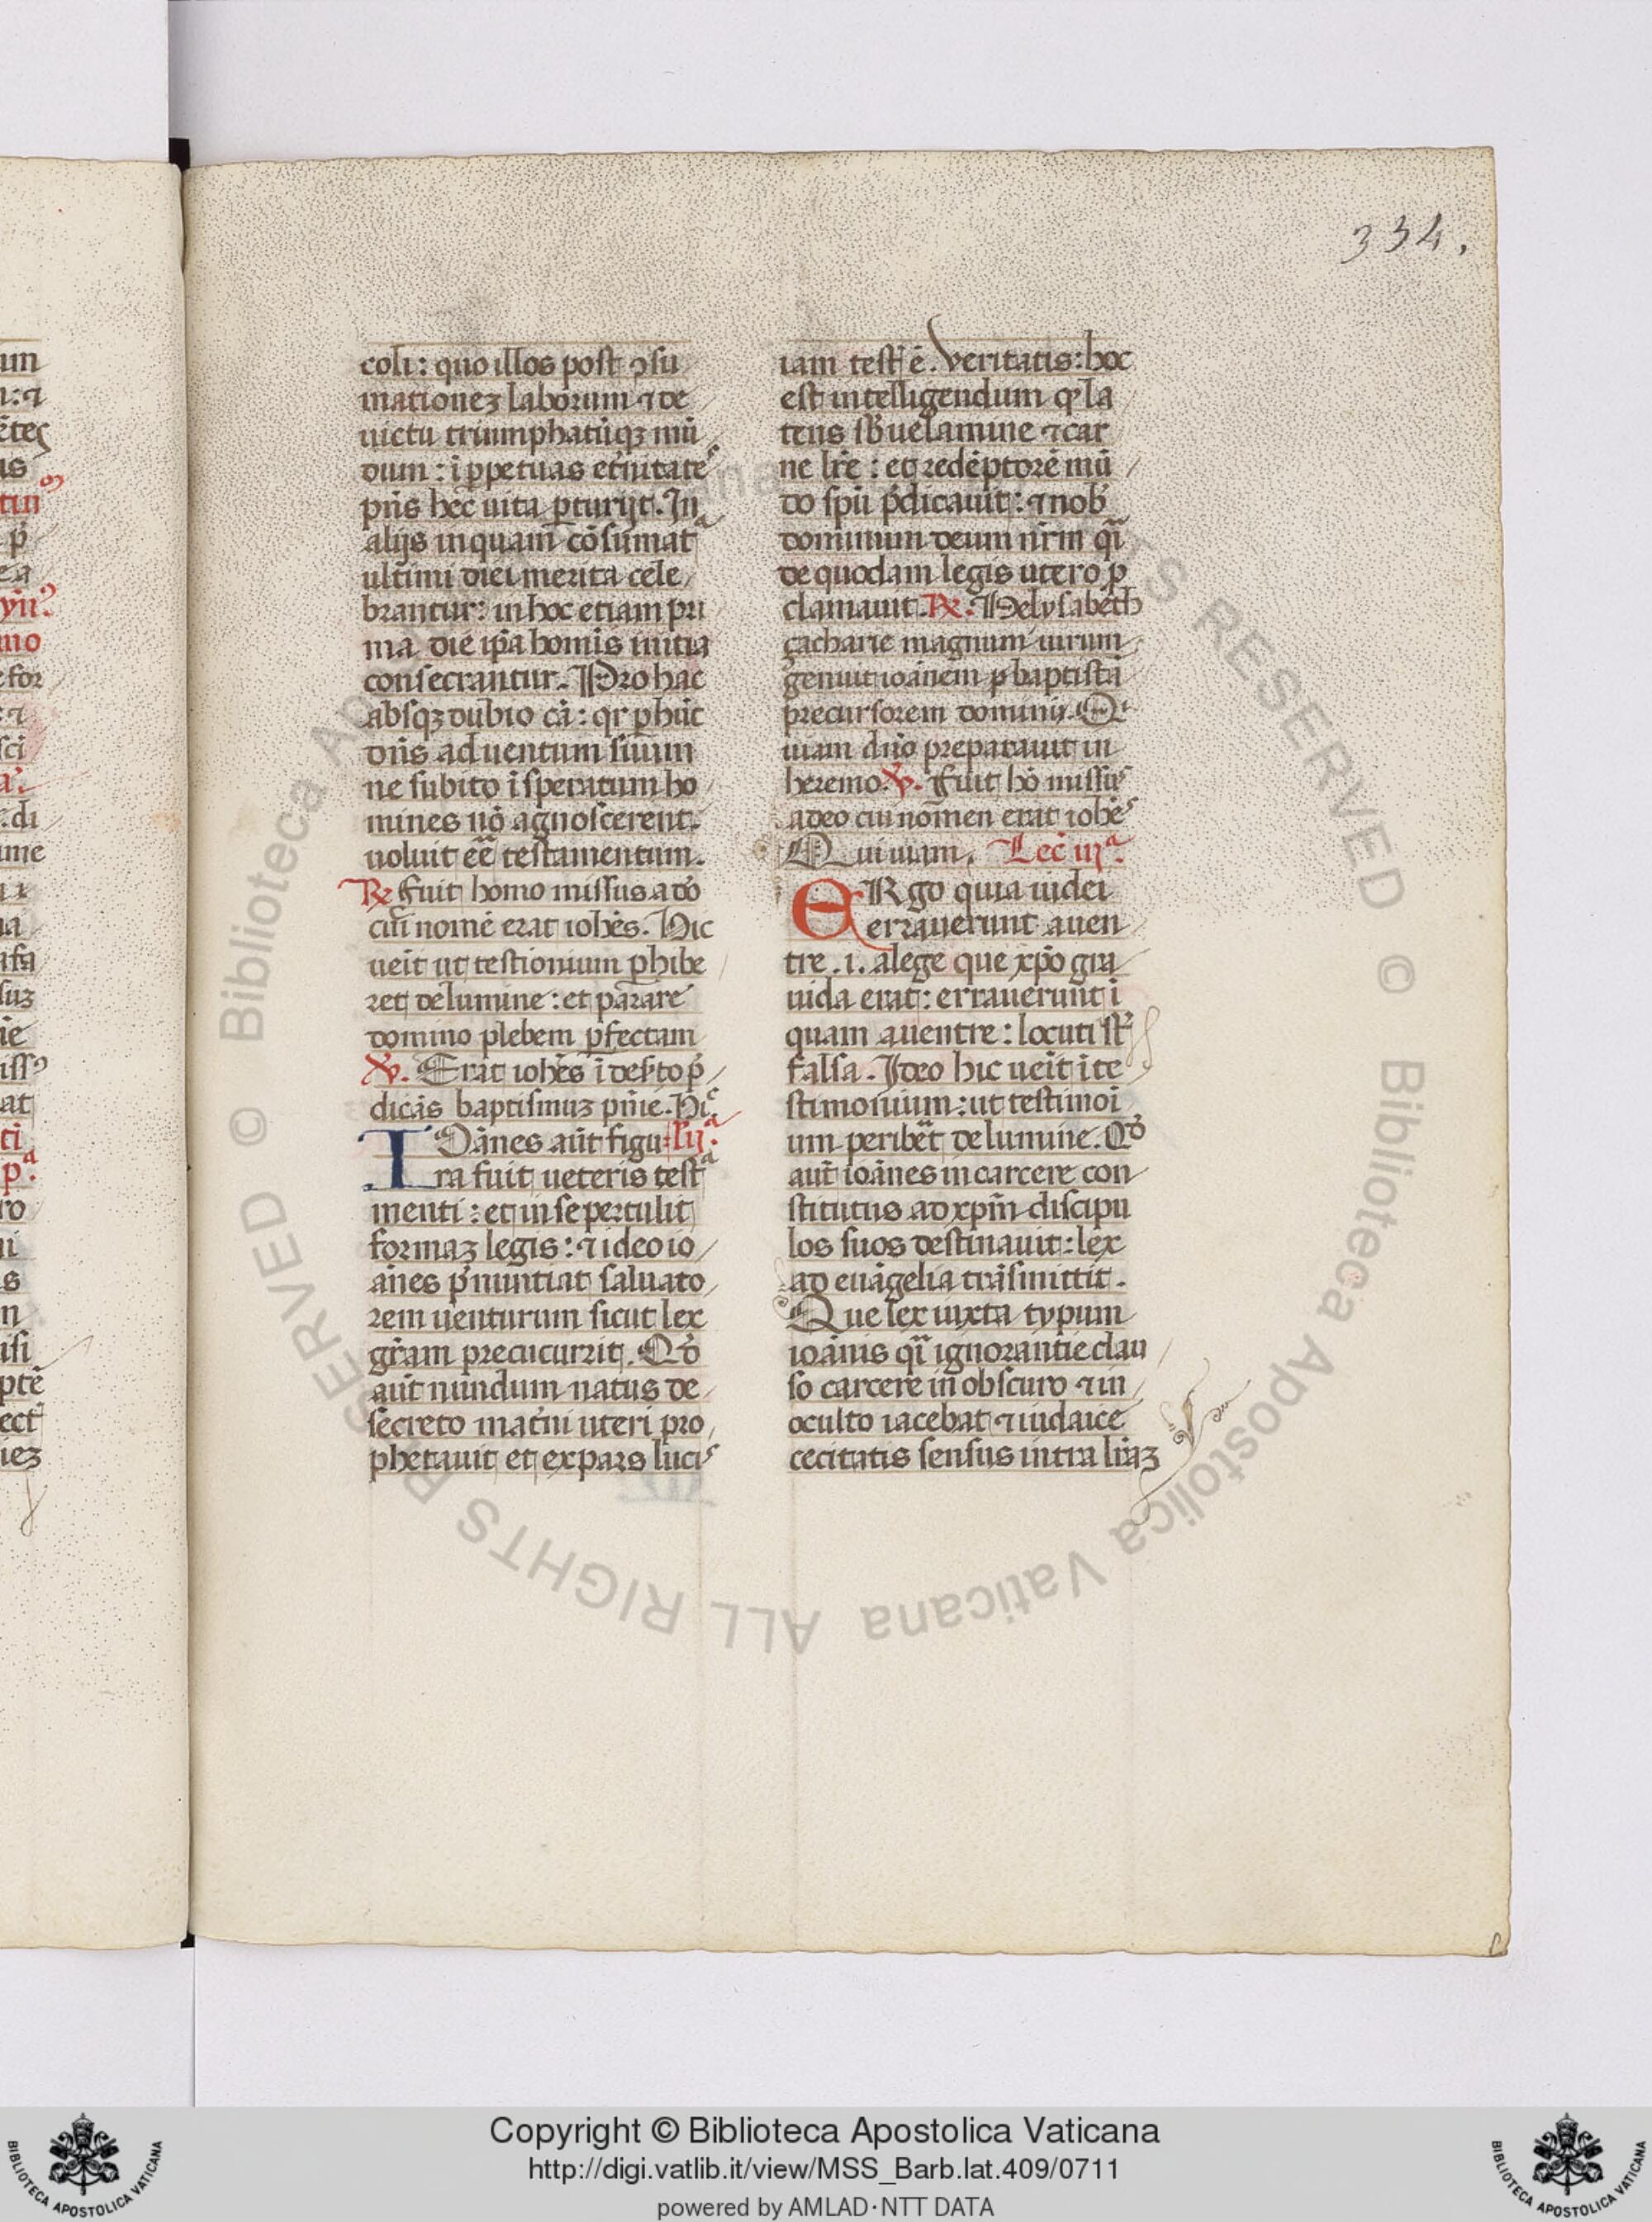 334.
coli: quo illos post ꝯsu
mationeꝫ laborum ⁊ de
uictu triumphatūqꝫ mū
dum: ī ꝑpetuas et̾nitateˢ
pn̄s hec uita ꝑturijt. In
alijs inquam cōsumatᵃ
ultimi diei merita cele
brantur: in hoc etiam pri
ma die ip̄a homīs initia
consecrantur. Pro hac
absqꝫ dubio cā: qr ꝑ hūc
dn̄s aduentum suum
ne subito īsperatum ho
mines nō agnoscerent.
uoluit eē testamentum.
℞ Fuit homo missus a dō
cui nomē erat ioh̄es. Hic
ueīt ut testionium ꝑhibe
ret de lumine: et parare
domino plebem ꝑfectam
℣. Erat ioh̄es ī des̾to p̄
dicās baptismuꝫ pn̄ie. Hiᶜ
IOānes aūt figu l̄ ijᵃ.
ra fuit ueteris testᵃ
menti: et in se pertulit
formaꝫ legis: ⁊ ideo io
ānes p̄nuntiat saluato
rem uenturum sicut lex
gr̄am precucurrit. Qd̄
aūt nundum natus de
secreto mat̾ni uteri pro
phetauit et expars luciˢ
iam test̾ ē. veritatis: hoc
est intelligendum ꝙ la
tens sb̾ uelamine ⁊ car
ne lr̄e: et redēptorē mū
do spū p̄dicauit: ⁊ nob̾
dominum deum nr̄m qᵃ̄
de quodam legis utero ꝓ
clamauit. ℞. Helysabeth
çacharie magnum uirum
genuit ioānem ꝑ baptistā
precursorem domini. Qⁱ
uiam dn̄o preparauit in
heremo. ℣. Fuit hō missuˢ
a deo cui nomen erat iohēˢ
Qui uiam. Lec̄ iijᵃ.
ERgo quia iudei
errauerunt a uen
tre .i. a lege que xp̄o gra
uida erat: errauerunt ī
quam a uentre: locuti st̄
falsa. Ideo hic ueīt ī te
stimonium: ut testimoī
um perib̾et de lumine. Qd̄
aūt ioānes in carcere con
stitutus ad xpm̄ discipu
los suos destinauit: lex
ad euāgelia trāsmittit.
Que lex iuxta typum
ioānis qᵃ̄ ignorantie clau
so carcere in obscuro ⁊ in
oculto iacebat ⁊ iudaice
cecitatis sensus intra lr̄aꝫ
Copyright © Biblioteca Apostolica Vaticana
http://digi.vatlib.it/view/MSS_Barb.lat.409/0711
powered by AMLAD·NTT DATA